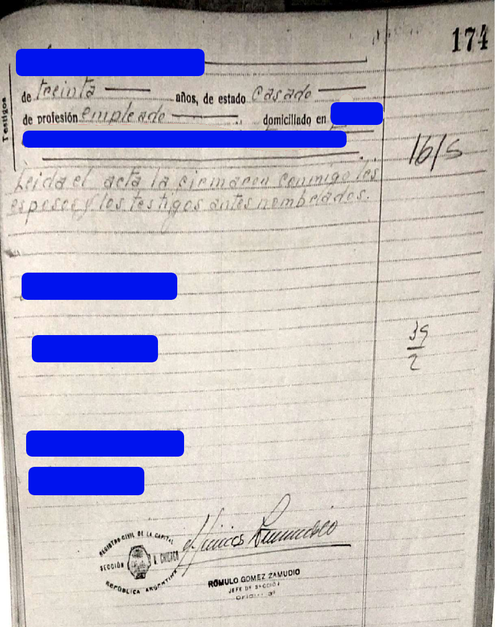 174
Testigos
de treinta años, de estado casado
de profesión empleado domiciliado en
16/5
Leida el acta la firmaron conmigo los
esposos y los testigos antes nombrados.
39
2
REGISTRO CIVIL DE LA CAPITAL
SECCIÓN
REPÚBLICA ARGENTINA
ROMULO GOMEZ ZAMUDIO
JEFE DE SECCION